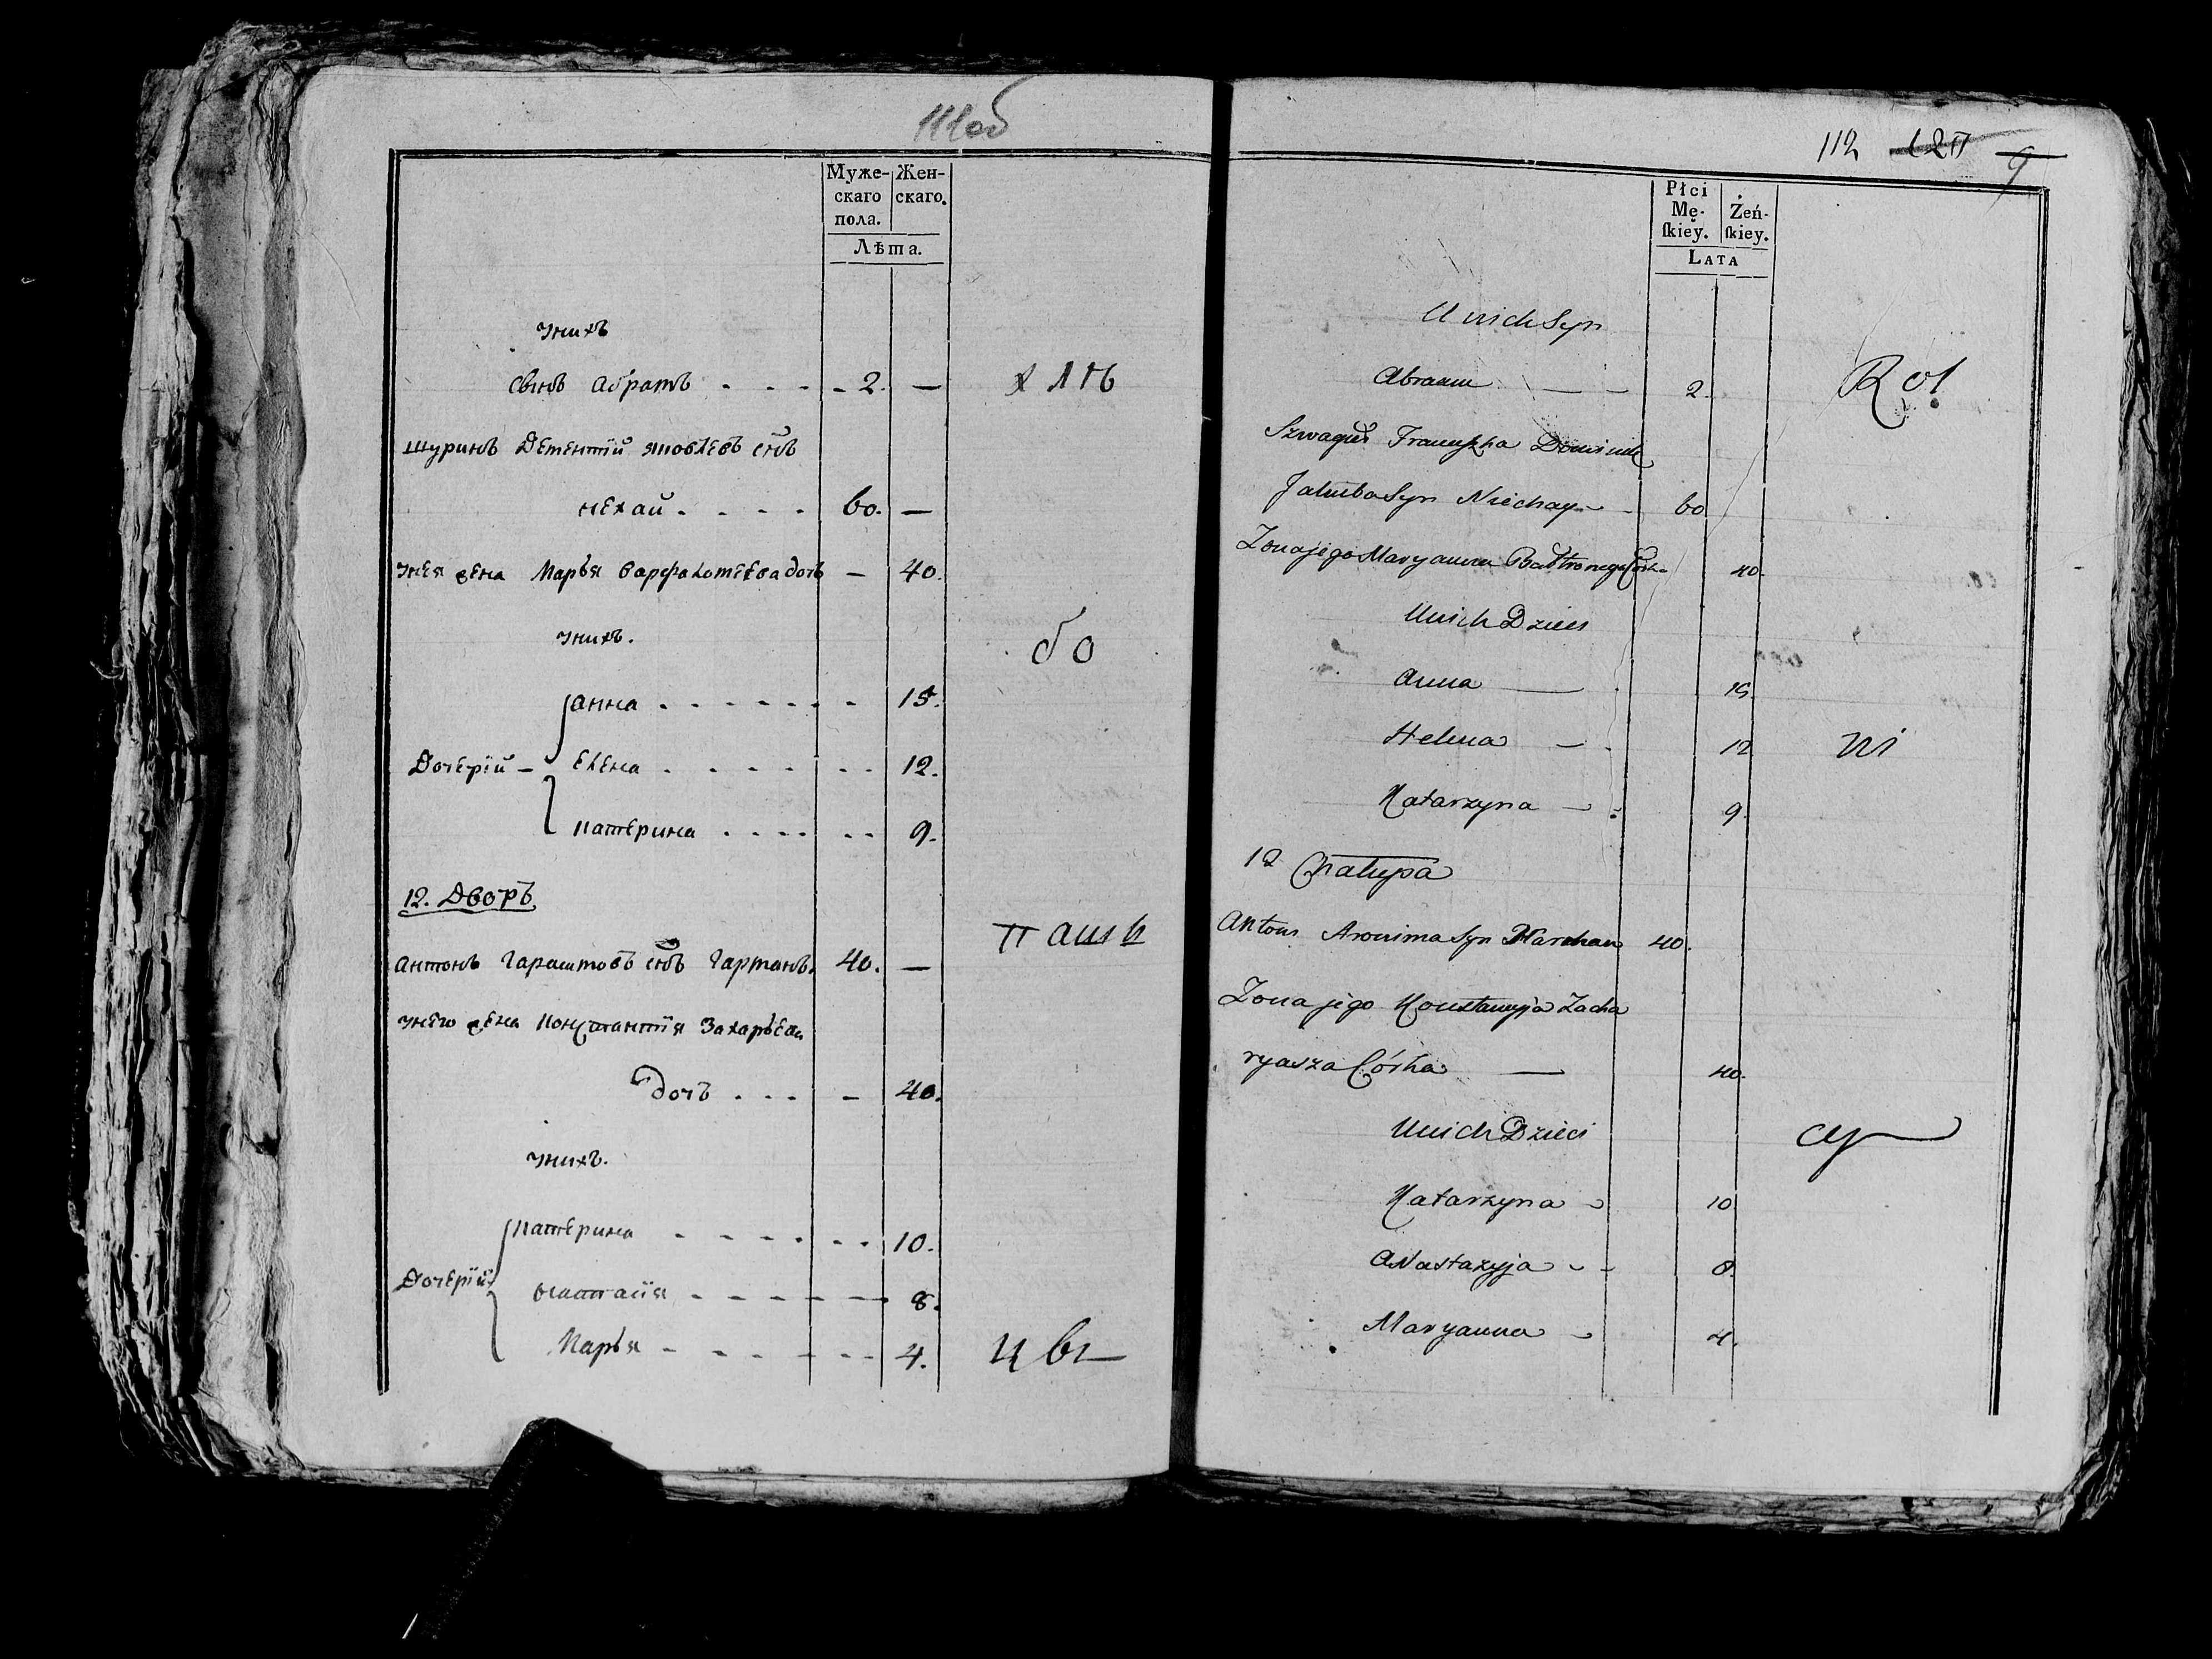 111об
Муже-
скаго
пола.
Жен-
скаго.
Лѣта.
унихъ
сынъ Абрамъ - 2. —
хлѣ
шуринъ Дементiй яковлевъ снъ
нехай 60. —
унея жена Марья варфаломеева дочь — 40.
унихъ.
бо
Анна 15.
Дочерiй — Елена 12.
катерина 9.
12. Дворъ
паш
Антонъ Гарасимовъ снъ Гарманъ. 40. —
унего жена константiя Захарьева
дочь — 40.
унихъ.
катерина 10.
Дочерiй
настасiя 8.
Марья 4.
цы
112 120 9
Płci
Mę-
ſkiey.
Żeń-
ſkiey.
LATA
U nich Syn
Abraam — 2.
Rol
Szwagier Franciszka Dominik
Jakuba Syn Niechay 60
Zona jego Maryanna Córka 40.
U nich Dzieci
Anna — 15.
Helena — 12
ni
Katarzyna — 9.
12 Chałupa
Antoni Syn Harchan 40.
Zona jego Konstancyja Zacha
ryasza Córka — 40.
U nich Dzieci
cy
Katarzyna 10
Anastazyja 8.
Maryanna 4.